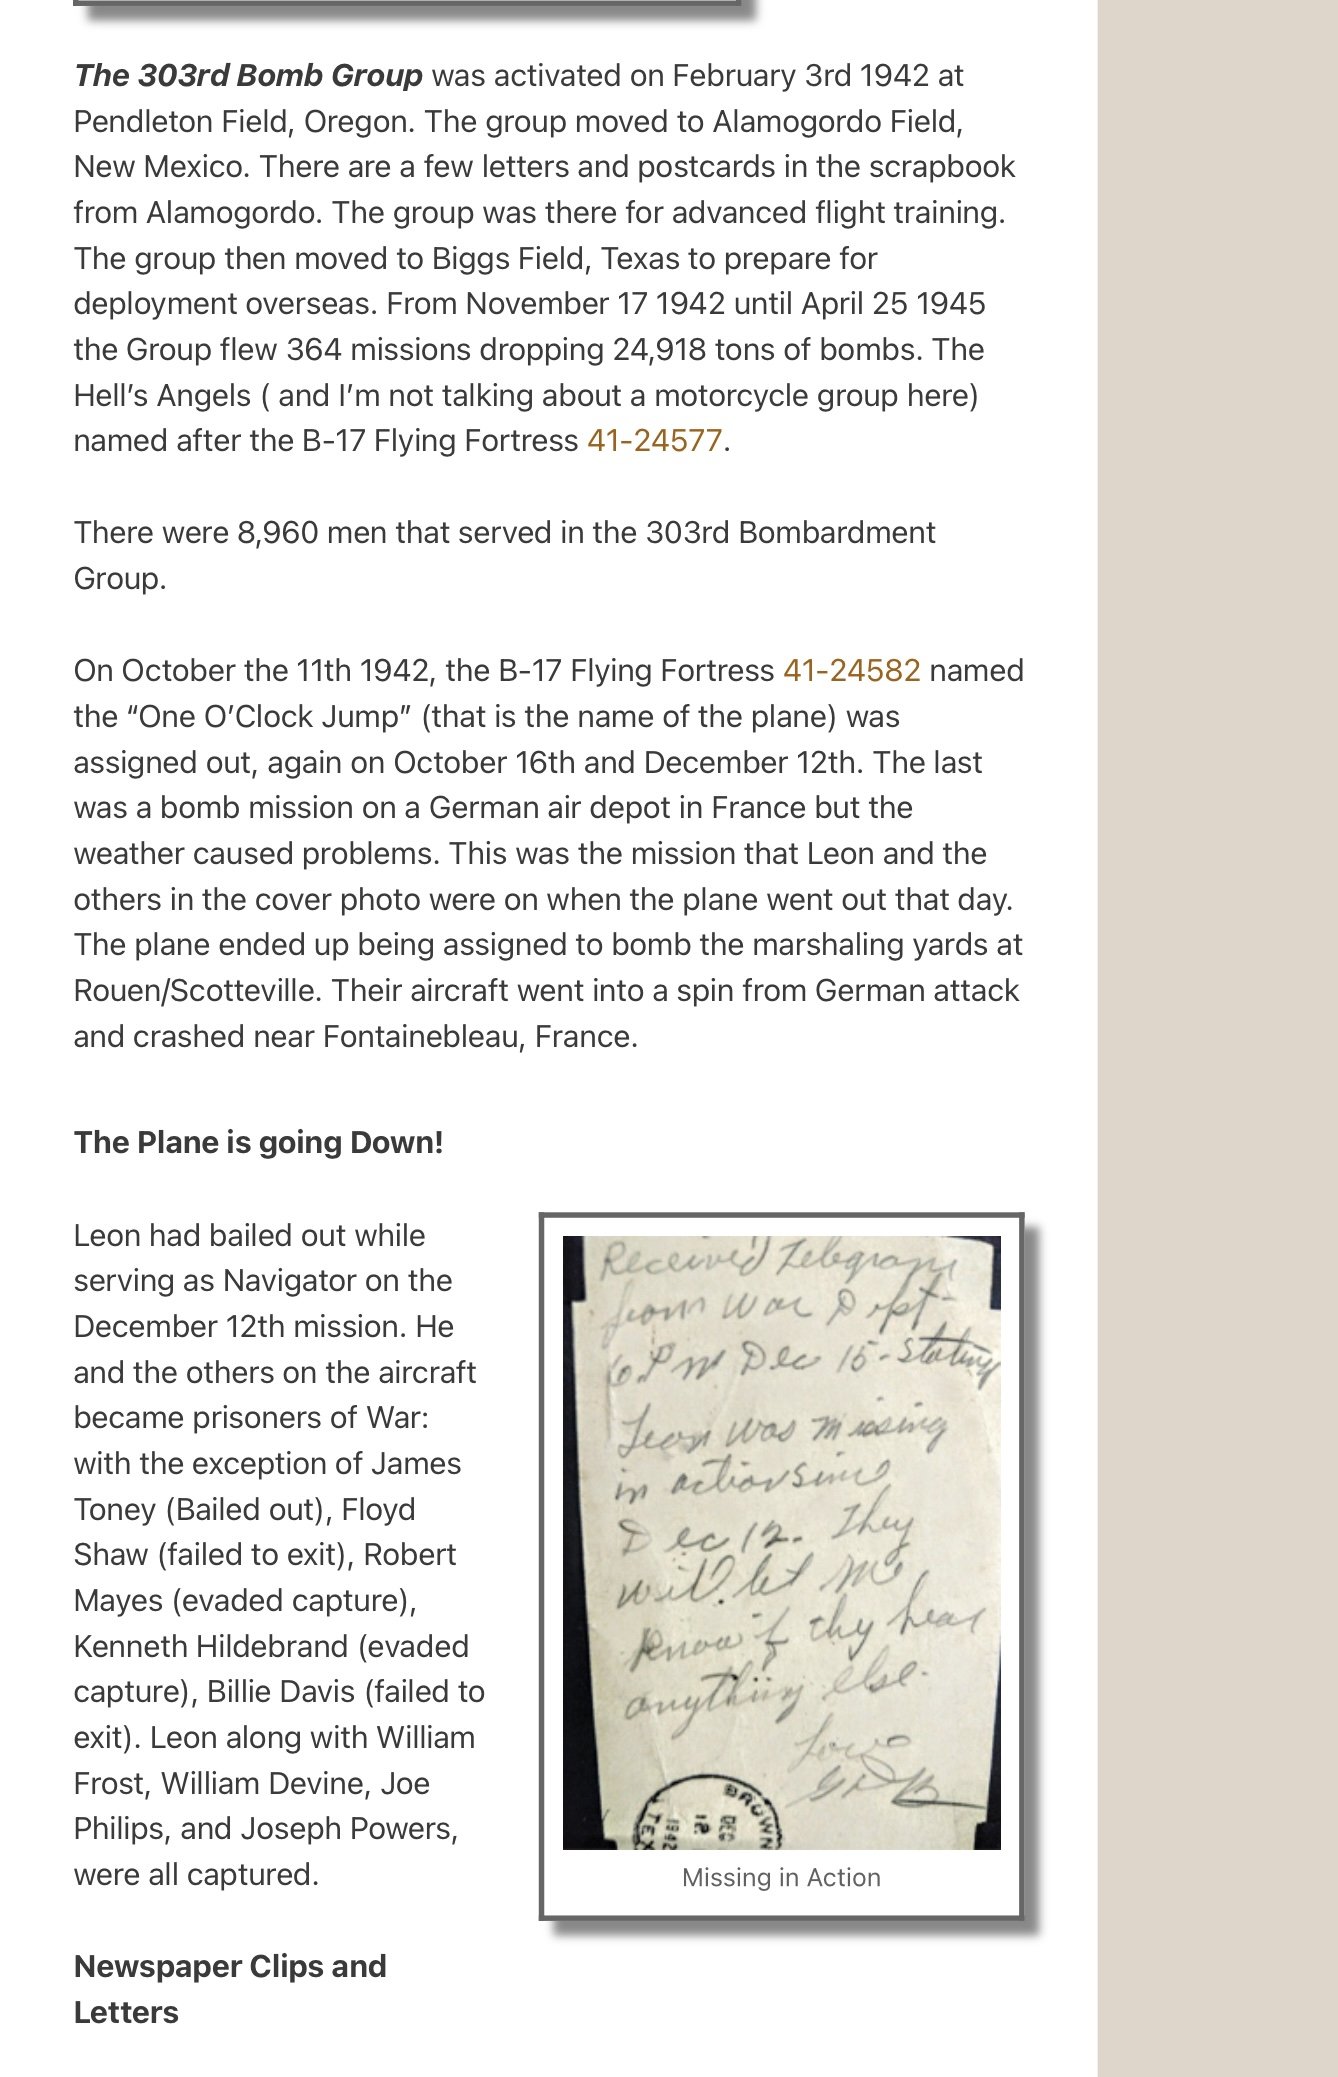 The 303rd Bomb Group was activated on February 3rd 1942 at
Pendleton Field, Oregon. The group moved to Alamogordo Field,
New Mexico. There are a few letters and postcards in the scrapbook
from Alamogordo. The group was there for advanced flight training.
The group then moved to Biggs Field, Texas to prepare for
deployment overseas. From November 17 1942 until April 25 1945
the Group flew 364 missions dropping 24,918 tons of bombs. The
Hell’s Angels ( and I’m not talking about a motorcycle group here)
named after the B-17 Flying Fortress 41-24577.
There were 8,960 men that served in the 303rd Bombardment
Group.
On October the 11th 1942, the B-17 Flying Fortress 41-24582 named
the “One O’Clock Jump” (that is the name of the plane) was
assigned out, again on October 16th and December 12th. The last
was a bomb mission on a German air depot in France but the
weather caused problems. This was the mission that Leon and the
others in the cover photo were on when the plane went out that day.
The plane ended up being assigned to bomb the marshaling yards at
Rouen/Scotteville. Their aircraft went into a spin from German attack
and crashed near Fontainebleau, France.
The Plane is going Down!
Leon had bailed out while
serving as Navigator on the
December 12th mission. He
and the others on the aircraft
became prisoners of War:
with the exception of James
Toney (Bailed out), Floyd
Shaw (failed to exit), Robert
Mayes (evaded capture),
Kenneth Hildebrand (evaded
capture), Billie Davis (failed to
exit). Leon along with William
Frost, William Devine, Joe
Philips, and Joseph Powers,
were all captured.
Received Telegram
from War Dept
6 P M Dec 15 - Stating
Leon was missing
in action since
Dec 12. They
will let me
know if thy hear
anything else.
Love
BROWN
DEC
12
1942
TEX
Missing in Action
Newspaper Clips and
Letters